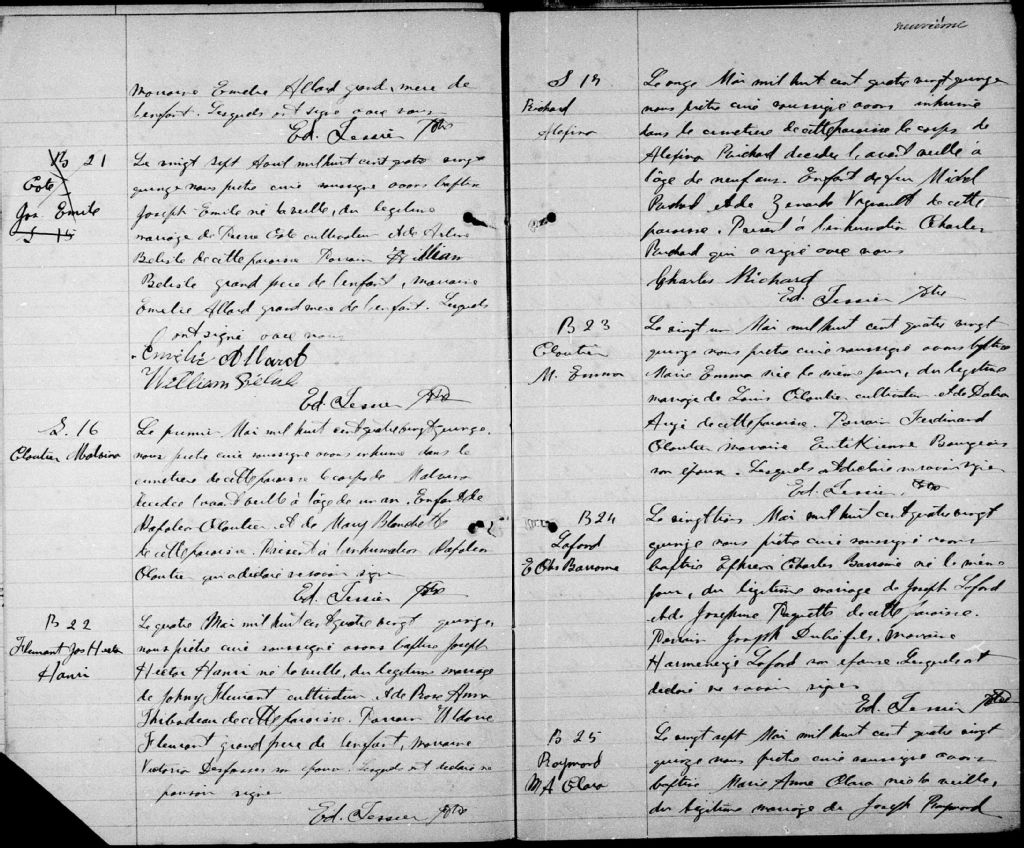 marraine Emelie Allard grand, mere de
lenfant. Lesquels ont signé avec nous
Ed. Tessier Ptre
B 21
Cote
Jos Emile
S 15
Le vingt sept Avril mil huit cent quatre vingt
quinze nous prêtre curé soussigné avons baptisé
Joseph Emile né la veille, du legitime
mariage de Pierre Cote cultivateur et de
Belisle de cette paroisse Parrain William
Belisle grand pere de lenfant, marraine
Emelie Allard grand mere de lenfant. Lesquels
ont signé avec nous
Emélie Allard
William Bélisle
Ed. Tessier Ptre
S. 16
Cloutier Malvina
Le premier Mai mil huit cent quatre vingt quinze,
nous prêtre curé soussigné avons inhumé dans le
cimetiere de cette paroisse le corps de Malvina
decedee lavant veille à lâge de un an. Enfant de
Napoleon Cloutier et de Mary Blanchette
de cette paroisse. Présent à linhumation Napoleon
Cloutier qui a declaré ne savoir signer
Ed. Tessier Ptre
B 22
Fleurant Jos Hector
Henri
Le quatre Mai mil huit cent quatre vingt quinze,
nous prêtre curé soussigné avons baptisé Joseph
Hector Henri né la veille, du legitime mariage
de Johny Fleurant cultivateur et de Rose Anna
Thibodeau de cette paroisse. Parrain
Fleurant grand pere de lenfant, marraine
Victoria Desfosses son epouse. Lesquels ont declaré ne
pouvoir signer
Ed. Tessier Ptre
neuvième
S 17
Richard
Alexina
Le onze Mai mil huit cent quatre vingt quinze
nous prêtre curé soussigné avons inhumé
dans le cimetiere de cette paroisse le corps de
Alexina Richard decedee lavant veille à
lâge de neuf ans. Enfant de feu Michel
Richard et de Vigneault de cette
paroisse. Present à linhumation Charles
Richard qui a signé avec nous
Charles Richard
Ed. Tessier Ptre
B 23
Cloutier
M. Emma
Le vingt un Mai mil huit cent quatre vingt
quinze nous prêtre curé soussigné avons baptisé
Marie Emma née le même jour, du legitime
mariage de Louis Cloutier cultivateur et de
de cette paroisse. Parrain Ferdinand
Cloutier marraine Bourgeois
son epouse. Lesquels ont declaré ne savoir signer
Ed. Tessier Ptre
B 24
Laford
E Chs Barromé
Le vingt trois Mai mil huit cent quatre vingt
quinze nous prêtre curé soussigné avons
baptisé Ephrem Charles Barromé né le même
jour, du legitime mariage de Joseph Laford
et de Josephine Paquette de cette paroisse.
Parrain Joseph marraine
Laford son epouse Lesquels ont
declaré ne savoir signer
Ed. Tessier Ptre
B 25
Raymond
M A Clara
Le vingt sept Mai mil huit cent quatre vingt
quinze nous prêtre curé soussigné avons
baptisé Marie Anne Clara née la veille,
du legitime mariage de Joseph Raymond